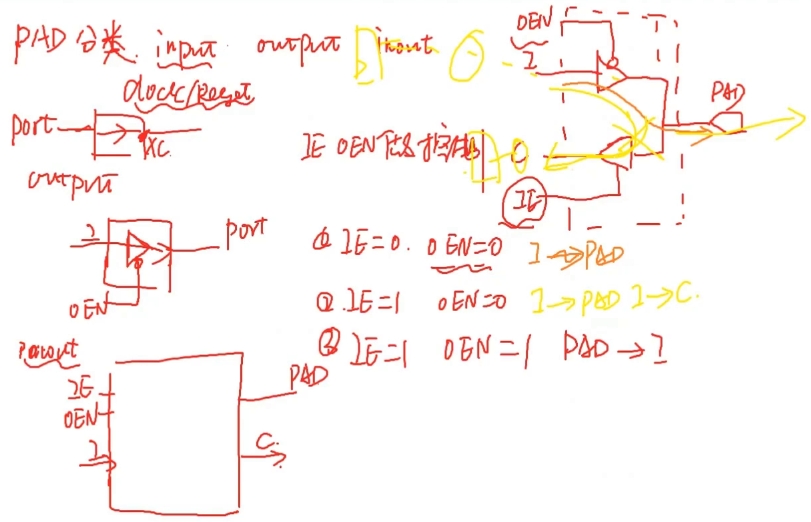 PAD分类. input output inout
clock/Reset
port XC.
output
I port
OEN
inout
IE
OEN
I
PAD
C.
OEN
I
PAD
C
IE
IE OEN
① IE=0. OEN=0 I→PAD
② IE=1 OEN=0 I→PAD I→C.
③ IE=1 OEN=1 PAD→I